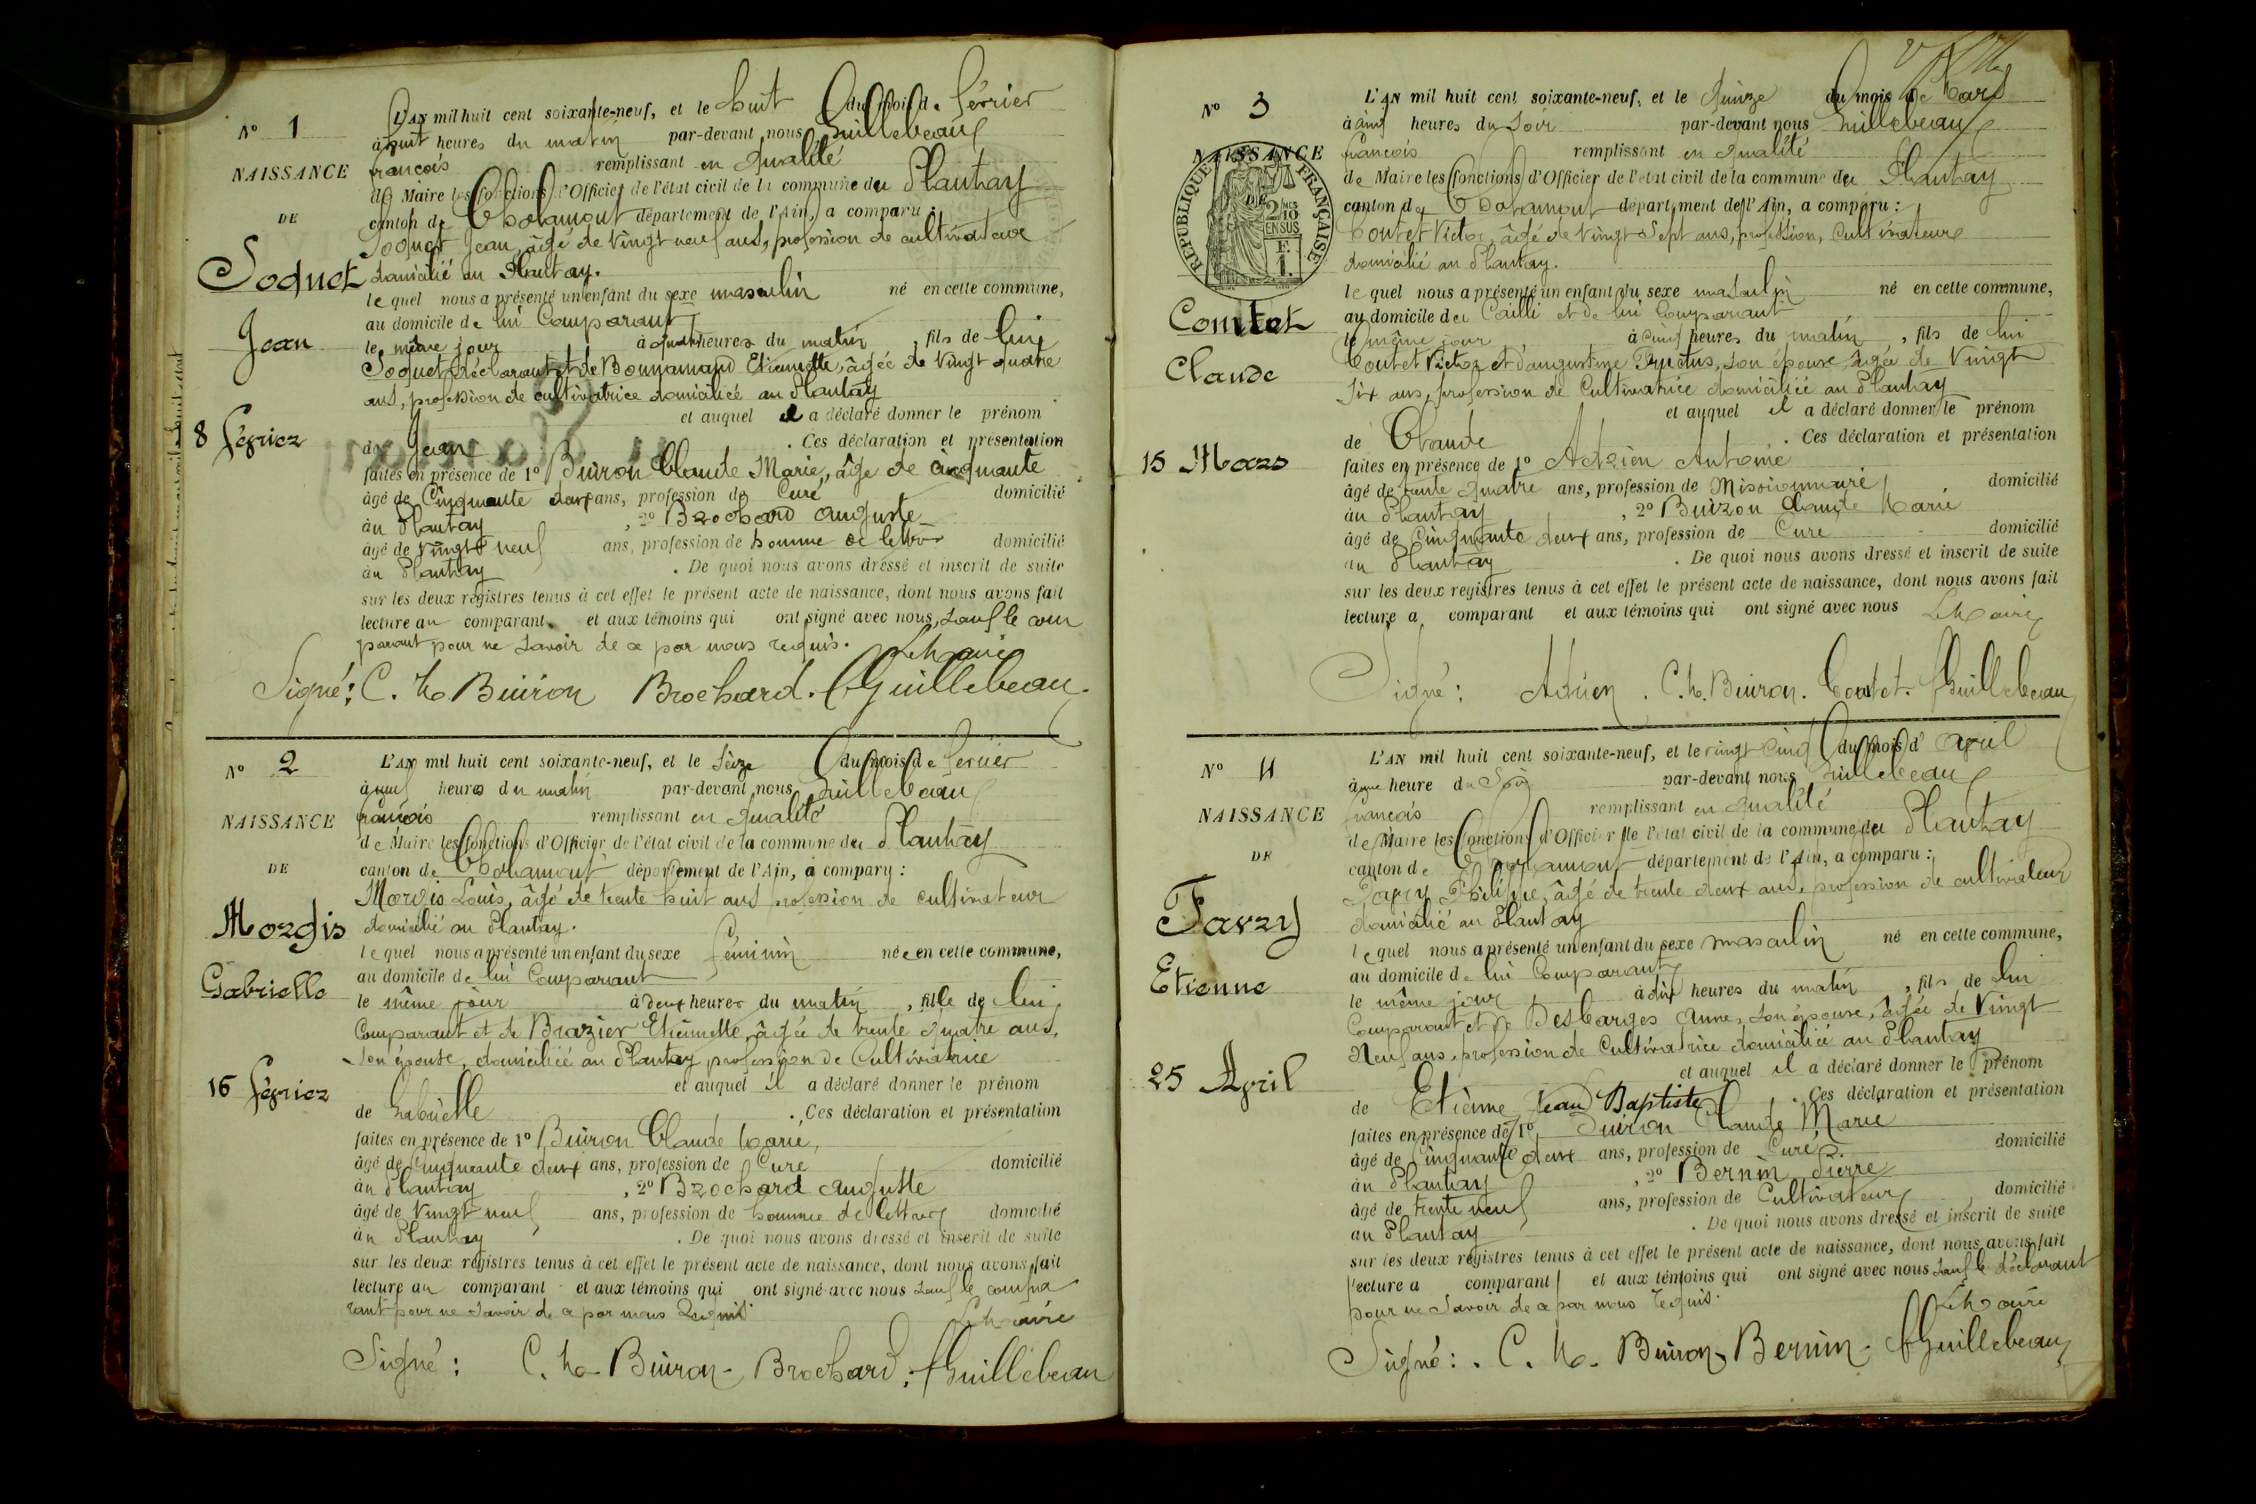 N° 1
NAISSANCE
DE
Soquet
Jean
8 février
L'AN mil huit cent soixante-neuf, et le huit du mois de février
à huit heures du matin par-devant nous Guillebeau
françois remplissant en qualité
de Maire les fonctions d'Officier de l'état civil de la commune du Plantay
canton de Chalamont département de l'Ain, a comparu :
Soquet Jean, âgé de vingt neuf ans, profession de cultivateur
domicilié au Plantay.
lequel nous a présenté un enfant du sexe masculin né en cette commune,
au domicile de lui Comparant
le même jour à quatre heures du matin, fils de lui
Soquet déclarant et de Bonnamand Etiennette, âgée de vingt quatre
ans, profession de cultivatrice domiciliée au Plantay
et auquel il a déclaré donner le prénom
de Jean . Ces déclaration et présentation
faites en présence de 1° Buiron Claude Marie, âge de cinquante
âgé de Cinquante deux ans, profession de Curé domicilié
au Plantay , 2° Brochard Auguste
âgé de vingt neuf ans, profession de homme de lettres domicilié
au Plantay . De quoi nous avons dressé et inscrit de suite
sur les deux registres tenus à cet effet le présent acte de naissance, dont nous avons fait
lecture au comparant et aux témoins qui ont signé avec nous, sauf le com
parant pour ne savoir de ce par nous requis. Le Maire
Signé : C. M. Buiron Brochard. f Guillebeau.
N° 2
NAISSANCE
DE
Morgis
Gabrielle
16 février
L'AN mil huit cent soixante-neuf, et le Seize du mois de fevrier
à neuf heures du matin par-devant nous Guillebeau
françois remplissant en qualité
de Maire les fonctions d'Officier de l'état civil de la commune du Plantay
canton de Chalamont département de l'Ain, a comparu :
Morgis Louis, âgé de trente huit ans profession de cultivateur
domicilié au Plantay.
lequel nous a présenté un enfant du sexe féminin née en cette commune,
au domicile de lui Comparant
le même jour à deux heures du matin, fille de lui
Comparant et de Brazier Etiennette, âgée de trente quatre ans,
son épouse, domiciliée au Plantay profession de Cultivatrice
et auquel il a déclaré donner le prénom
de Gabrielle . Ces déclaration et présentation
faites en présence de 1° Buiron Claude Marie,
âgé de Cinquante deux ans, profession de Curé domicilié
au Plantay , 2° Brochard Auguste
âgé de vingt neuf ans, profession de homme de lettres domicilié
au Plantay . De quoi nous avons dressé et inscrit de suite
sur les deux registres tenus à cet effet le présent acte de naissance, dont nous avons fait
lecture au comparant et aux témoins qui ont signé avec nous sauf le compa
rant pour ne savoir de ce par nous requis Le Maire
Signé : C. M. Buiron - Brochard. f Guillebeau
N° 3
NAISSANCE
DE
RÉPUBLIQUE FRANÇAISE
2/10 EN SUS
F. 1.
Coutet
Claude
15 Mars
L'AN mil huit cent soixante-neuf, et le Quinze du mois de Mars
à cinq heures du Soir par-devant nous Guillebeau
francois remplissant en qualité
de Maire les fonctions d'Officier de l'état civil de la commune du Plantay
canton de Chalamont département de l'Ain, a comparu :
Coutet Victor, âgé de vingt Sept ans, profession, Cultivateur
domicilié au Plantay.
lequel nous a présenté un enfant du sexe masculin né en cette commune,
au domicile de Cailli et de lui Comparant
le même jour à cinq heures du matin, fils de lui
Coutet Victor et d'augustine, son épouse âgée de Vingt
Six ans, profession de Cultivatrice domiciliée au Plantay
et auquel il a déclaré donner le prénom
de Claude . Ces déclaration et présentation
faites en présence de 1° Adrien Antoine
âgé de trente quatre ans, profession de Missionnaire domicilié
au Plantay , 2° Buiron Claude Marie
âgé de Cinquante deux ans, profession de Curé domicilié
au Plantay . De quoi nous avons dressé et inscrit de suite
sur les deux registres tenus à cet effet le présent acte de naissance, dont nous avons fait
lecture a comparant et aux témoins qui ont signé avec nous Le Maire
Signé : Adrien . C. M. Buiron. Coutet. f Guillebeau
N° 4
NAISSANCE
DE
Favry
Etienne
25 Avril
L'AN mil huit cent soixante-neuf, et le vingt cinq du mois d'avril
à une heure du Soir par-devant nous Guillebeau
françois remplissant en qualité
de Maire les fonctions d'Officier de l'état civil de la commune du Plantay
canton de Chalamont département de l'Ain, a comparu :
Favry Philippe, âgé de trente deux ans, profession de cultivateur
domicilié au Plantay
lequel nous a présenté un enfant du sexe masculin né en cette commune,
au domicile de lui Comparant
le même jour à dix heures du matin, fils de lui
Comparant et de Desbarges Anne, son épouse, âgée de Vingt
Neuf ans, profession de Cultivatrice domiciliée au Plantay
et auquel il a déclaré donner le prénom
de Etienne Jean Baptiste . Ces déclaration et présentation
faites en présence de 1° Buiron Claude Marie
âgé de Cinquante deux ans, profession de Curé domicilié
au Plantay , 2° Bernin Pierre
âgé de trente neuf ans, profession de Cultivateur domicilié
au Plantay . De quoi nous avons dressé et inscrit de suite
sur les deux registres tenus à cet effet le présent acte de naissance, dont nous avons fait
lecture a comparant et aux témoins qui ont signé avec nous sauf le déclarant
pour ne savoir de ce par nous requis. Le Maire
Signé : C. M. Buiron - Bernin - f Guillebeau